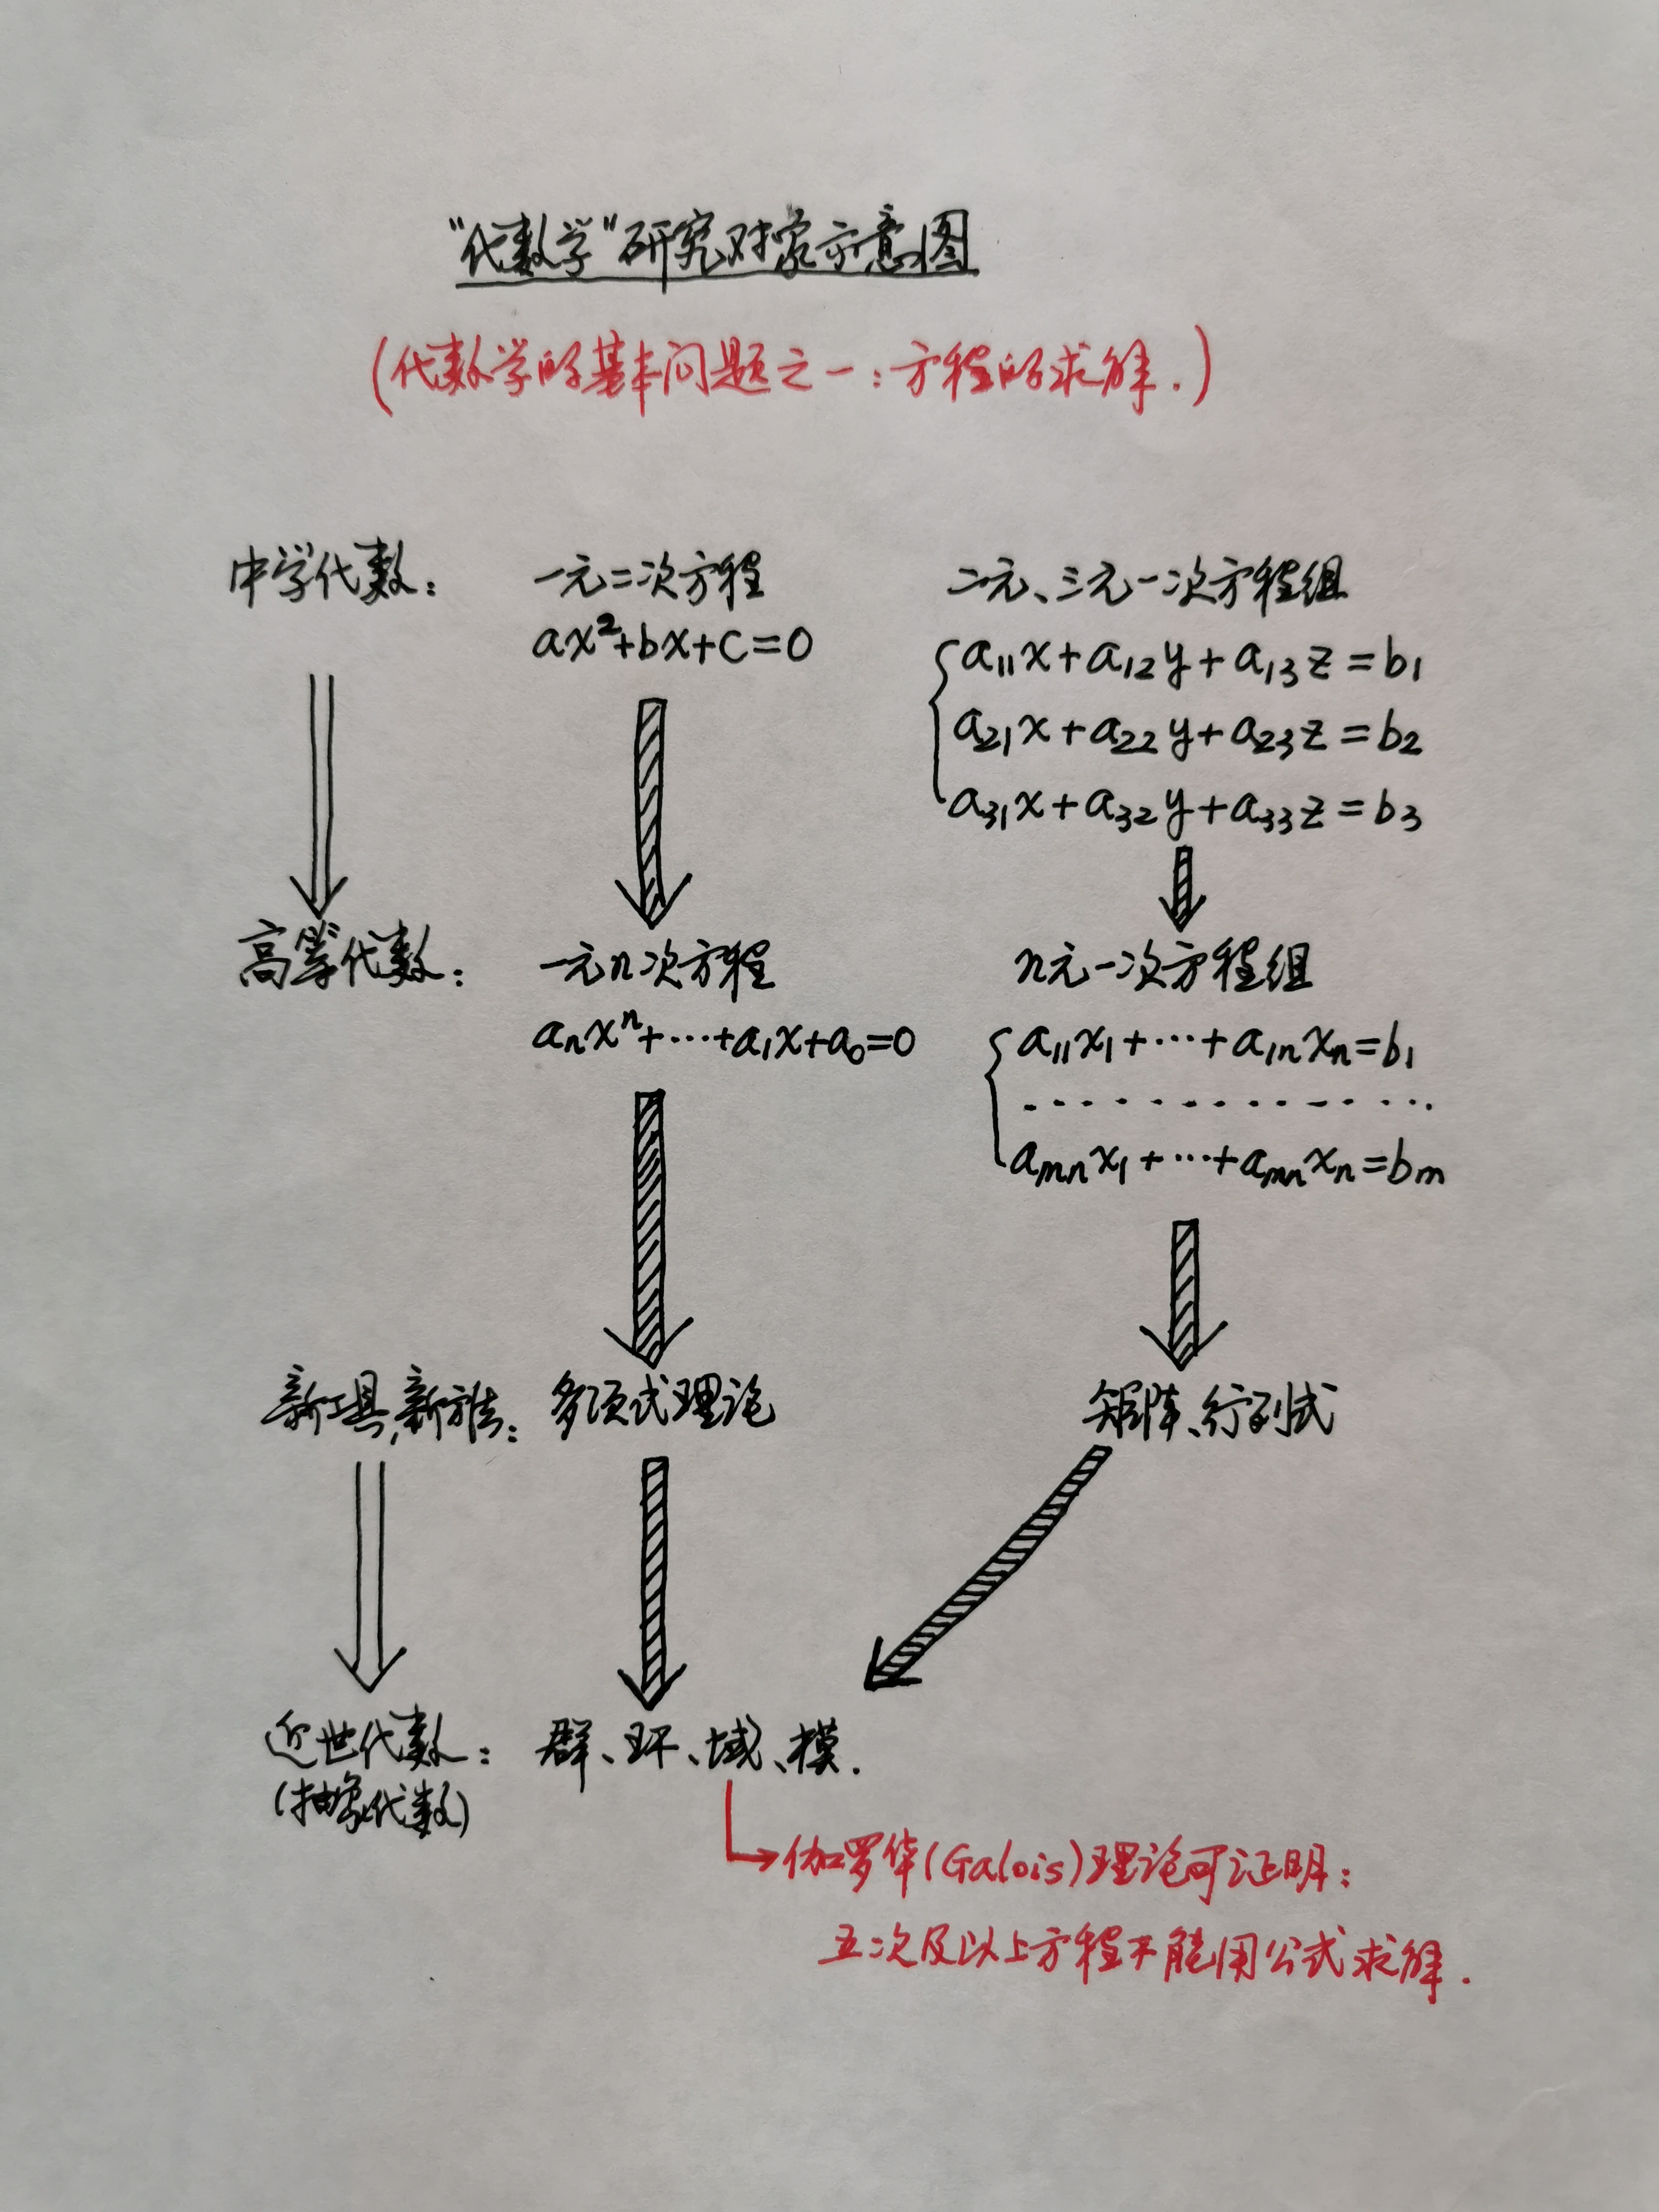 “代数学”研究对象示意图
(代数学的基本问题之一：方程的求解.)
中学代数： 一元二次方程 二元、三元一次方程组
ax²+bx+c=0
a₁₁x+a₁₂y+a₁₃z=b₁
a₂₁x+a₂₂y+a₂₃z=b₂
a₃₁x+a₃₂y+a₃₃z=b₃
高等代数： 一元n次方程 n元一次方程组
aₙxⁿ+⋯+a₁x+a₀=0
a₁₁x₁+⋯+a₁ₙxₙ=b₁
..............
aₘₙx₁+⋯+aₘₙxₙ=bₘ
新工具,新方法： 多项式理论 矩阵、行列式
近世代数： 群、环、域、模.
(抽象代数)
伽罗华(Galois)理论可证明：
五次及以上方程不能用公式求解.